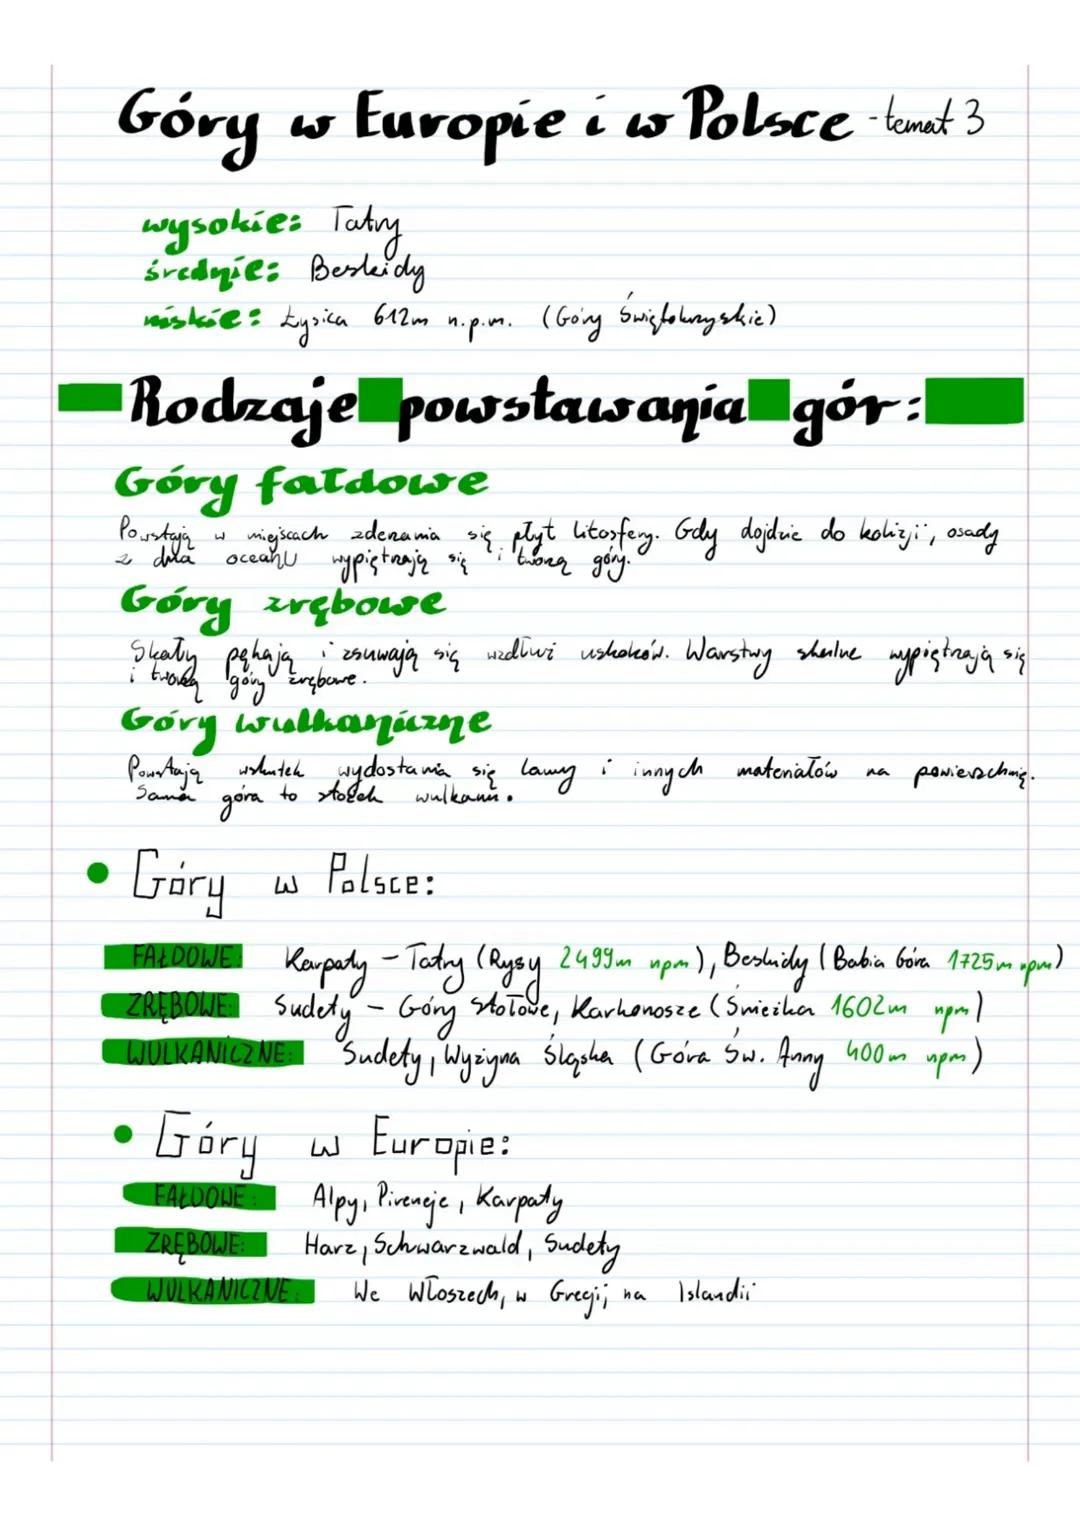 Góry w Europie i w Polsce - temat 3
wysokie: Tatry
średnie: Beskidy
niskie: Łysica 612m n.p.m. (Góry Świętokrzyskie)
Rodzaje powstawania gór:
Góry fałdowe
Powstają w miejscach zderzania się płyt litosfery. Gdy dojdzie do kolizji, osady
z dna oceanu wypiętrzają się i tworzą góry.
Góry zrębowe
Skały pękają i zsuwają się wzdłuż uskoków. Warstwy skalne wypiętrzają się
i tworzą góry zrębowe.
Góry wulkaniczne
Powstają wskutek wydostania się lawy i innych materiałów na powierzchnię.
Sama góra to stożek wulkanu.
• Góry w Polsce:
FAŁDOWE: Karpaty - Tatry (Rysy 2499m npm), Beskidy (Babia Góra 1725m npm)
ZRĘBOWE: Sudety - Góry Stołowe, Karkonosze (Śnieżka 1602m npm)
WULKANICZNE: Sudety, Wyżyna Śląska (Góra Św. Anny 400m npm)
• Góry w Europie:
FAŁDOWE: Alpy, Pireneje, Karpaty
ZRĘBOWE: Harz, Schwarzwald, Sudety
WULKANICZNE: We Włoszech, w Grecji, na Islandii